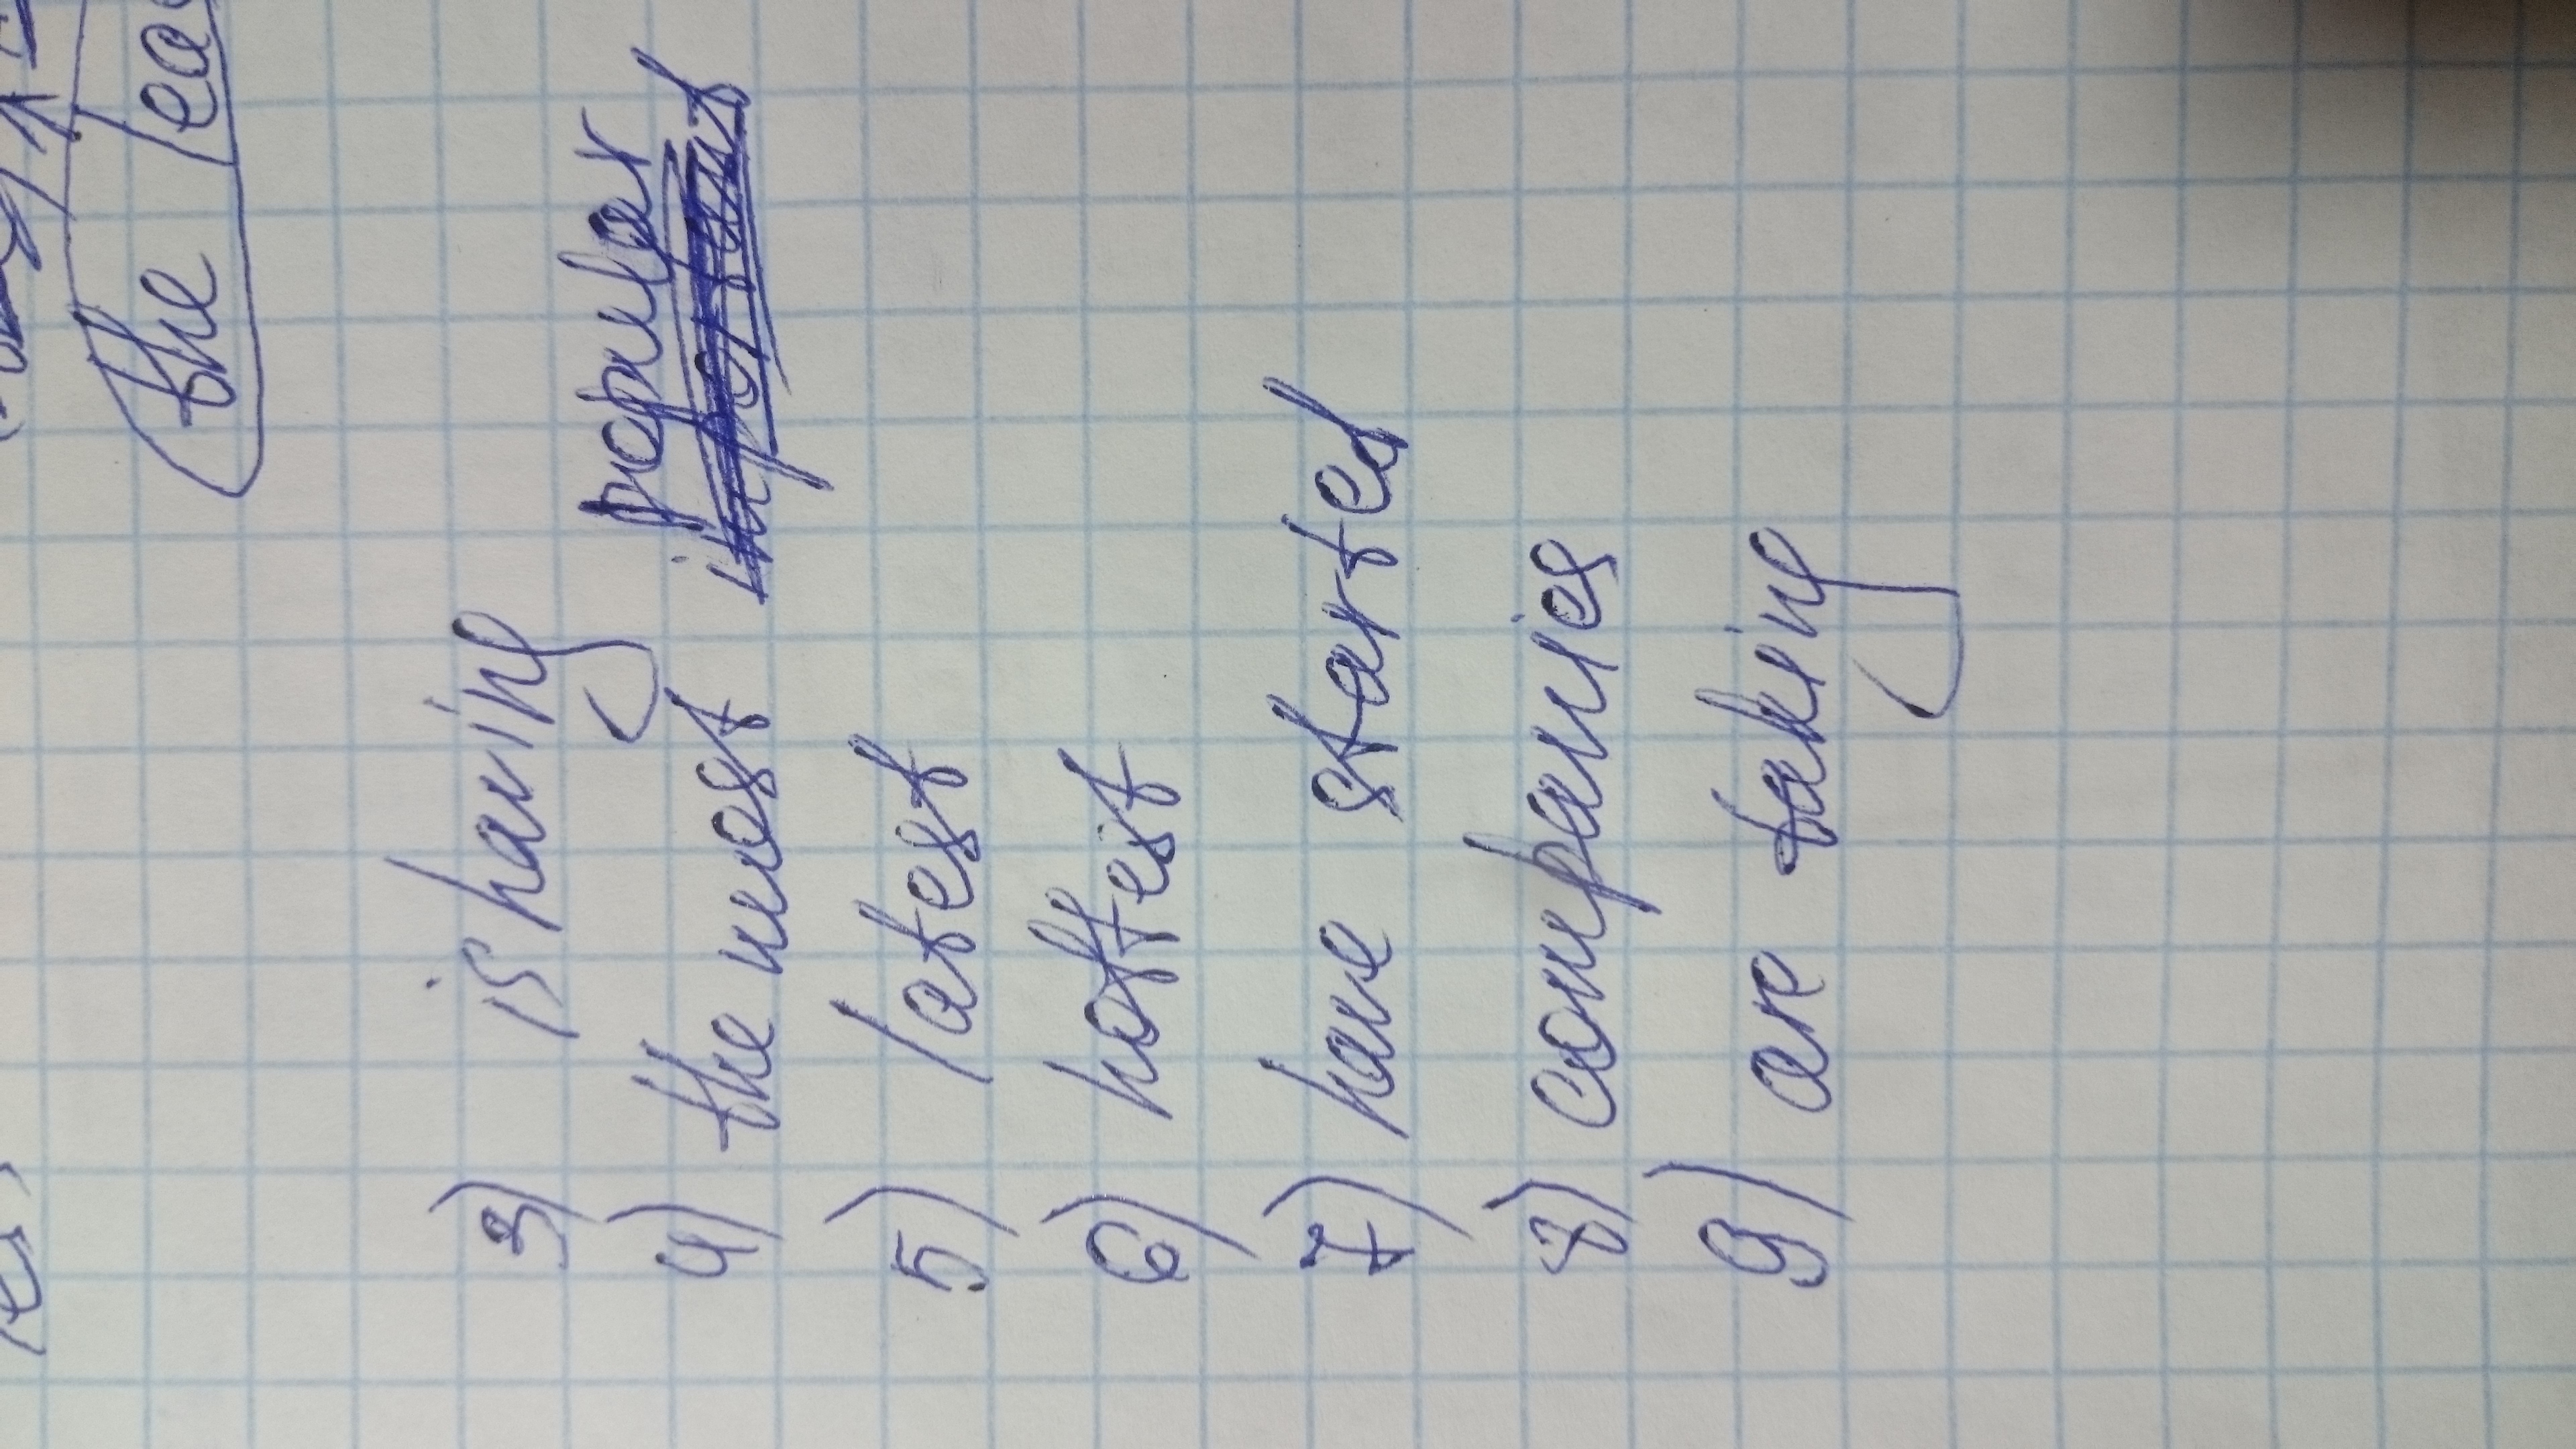 the lea
3) is having
4) the most popular
5) latest
6) hottest
7) have started
8) companies
9) are taking